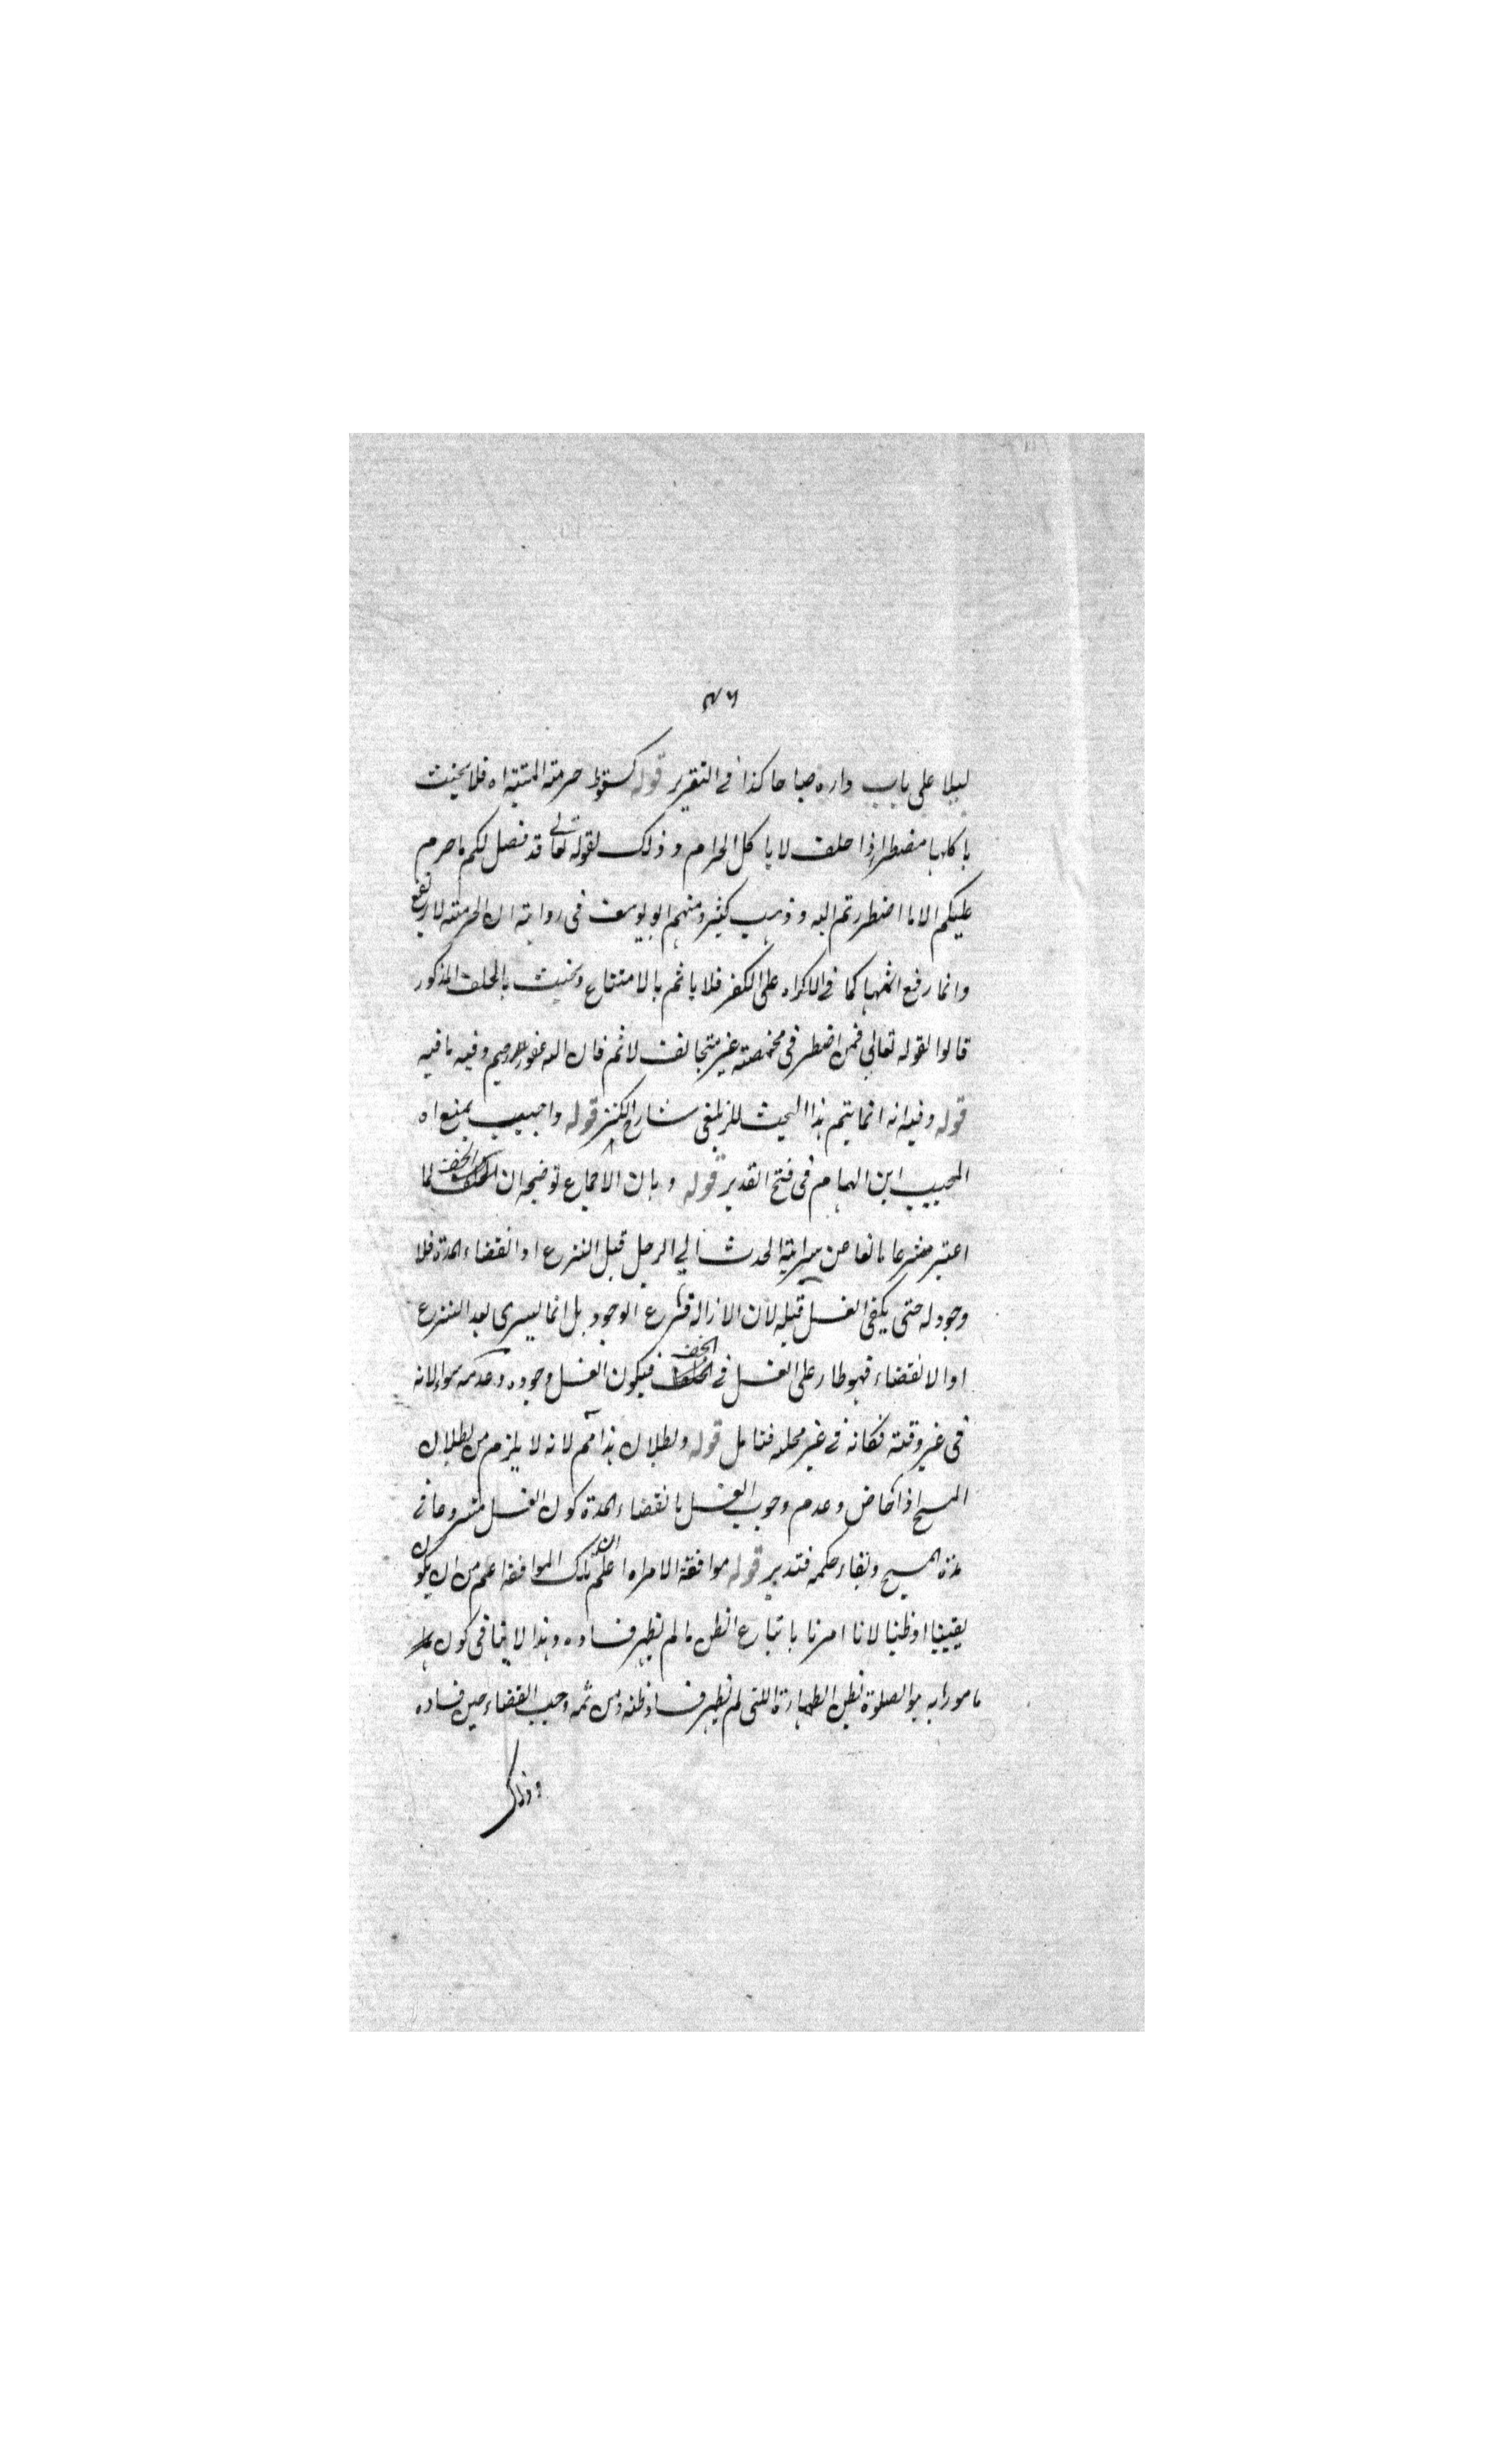 ٤٦
ليلا على باب داره صباحا كذا في التقرير قوله كسقوط حرمة الميتة اه فلا يحنث
باكلها مضطرا اذا حلف لا ياكل الحرام و ذلك لقوله تعالى قد فصل لكم ما حرم
عليكم الا ما اضطررتم اليه و ذهب كثير ومنهم ابو يوسف في رواية ان الحرمة لا ترتفع
وانما رفع اثمها كما في الاكراه على الكفر فلا ياثم بالامتناع ويحنث بالحلف المذكور
قالوا لقوله تعالى فمن اضطر في مخمصة غير متجانف لاثم فان الله غفور رحيم وفيه ما فيه
قوله وفيه انه انما يتم هذا البحث للزيلعي شارح الكنز قوله واجيب بمنع اه
المجيب ابن الهمام في فتح القدير قوله وبان الاجماع توضيحه ان الخف لما
اعتبر شرعا مانعا من سراية الحدث الى الرجل قبل النزع او انقضاء المدة فلا
وجود له حتى يكفي الغسل قبله لان الازالة فرع الوجود بل انما يسرى بعد النزع
او الانقضاء فهو طار على الغسل في الخف فيكون الغسل وجوده وعدمه سواء لانه
في غير وقته فكانه في غير محله فتامل قوله وبطلان هذا اه لانه لا يلزم من بطلان
المسح اذا خاض وعدم وجوب الغسل بانقضاء المدة كون الغسل مشروعا في
مدة المسح وبقاء حكمه فتدبر قوله موافقة الامر اه اعلم ان تلك الموافقة اعم من ان يكون
يقينيا او ظنيا لانا امرنا باتباع الظن ما لم يظهر فساده وهذا لا ينافي كون
مامورا به هو الصلوة بظن الطهارة التي لم يظهر فساد ظنه ومن ثمه وجب القضاء حين فساده
وذلك